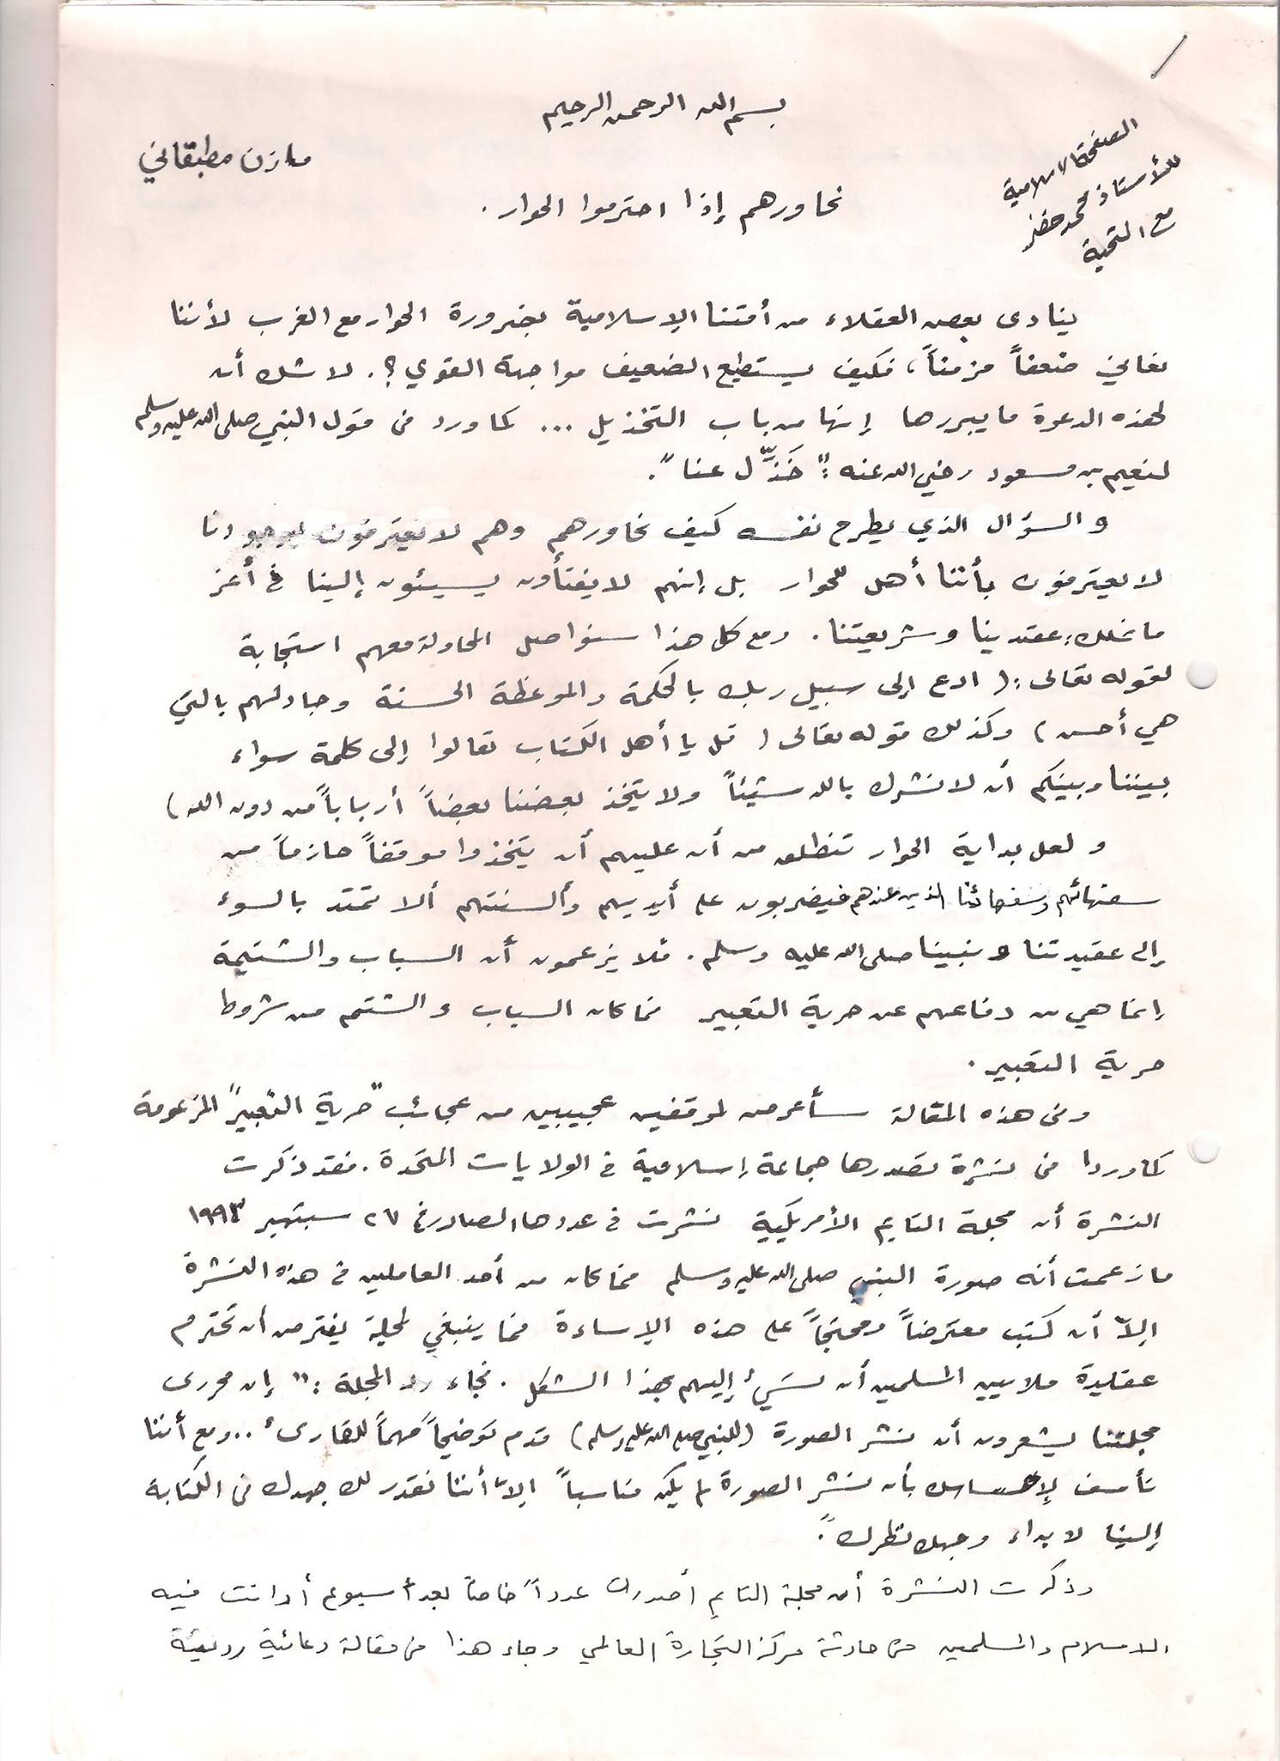 بسم الله الرحمن الرحيم
الصفحة الاسلامية
للأستاذ محمد خضر
مع التحية
مازن مطبقاني
نحاورهم إذا احترموا الحوار .
ينادى بعض العقلاء من أمتنا الإسلامية بضرورة الحوار مع الغرب لأننا
نعاني ضعفاً مزمناً، فكيف يستطيع الضعيف مواجهة القوي؟. لا شك أن
لهذه الدعوة ما يبررها إنها من باب التخذيل ... كما ورد في قول النبي صلى الله عليه وسلم
لنعيم بن مسعود رضي الله عنه : " خَذِّل عنا ".
والسؤال الذي يطرح نفسه كيف نحاورهم وهم لا يعترفون بوجودنا
لا يعترفون بأننا أهل للحوار بل إنهم لا يفتأون يسيئون إلينا في أعز
ما نملك: عقيدتنا وشريعتنا . ومع كل هذا سنواصل المحاولة معهم استجابة
لقوله تعالى : ( ادع إلى سبيل ربك بالحكمة والموعظة الحسنة وجادلهم بالتي
هي أحسن ) وكذلك قوله تعالى ( قل يا أهل الكتاب تعالوا إلى كلمة سواء
بيننا وبينكم أن لا نشرك بالله شيئاً ولا يتخذ بعضنا بعضاً أرباباً من دون الله )
ولعل بداية الحوار تنطلق من أن عليهم أن يتخذوا موقفاً حازماً من
سفهائهم وسفهائنا الذين عندهم فيضربون على أيديهم وألسنتهم ألا تمتد بالسوء
إلى عقيدتنا ونبينا صلى الله عليه وسلم . فلا يزعمون أن السباب والشتيمة
إنما هي من دفاعهم عن حرية التعبير فما كان السباب والشتم من شروط
حرية التعبير .
وفي هذه المقالة سأعرض لموقفين عجيبين من عجائب "حرية التعبير" المزعومة
كما وردا في نشرة تصدرها جماعة إسلامية في الولايات المتحدة . فقد ذكرت
النشرة أن مجلة التايم الأمريكية نشرت في عددها الصادر في ٢٧ سبتمبر ١٩٩٣
ما زعمت أنه صورة النبي صلى الله عليه وسلم فما كان من أحد العاملين في هذه النشرة
إلاّ أن كتب معترضاً ومحتجاً على هذه الإساءة فما ينبغي لمجلة يفترض أن تحترم
عقيدة ملايين المسلمين أن تسيء إليهم بهذا الشكل . فجاء رد المجلة : " إن محررى
مجلتنا يشعرون أن نشر الصورة (للنبي صلى الله عليه وسلم) قدم توضيحاً مهماً للقارىء .. ومع أننا
نأسف لإحساسك بأن نشر الصورة لم يكن مناسباً إلاّ أننا نقدر لك جهدك في الكتابة
إلينا لابداء وجهة نظرك ".
وذكرت النشرة أن مجلة التايم أصدرت عدداً خاصاً بعد أسبوع أدانت فيه
الاسلام والمسلمين في حادثة مركز التجارة العالمي وجاء هذا في مقالة دعائية رديئة